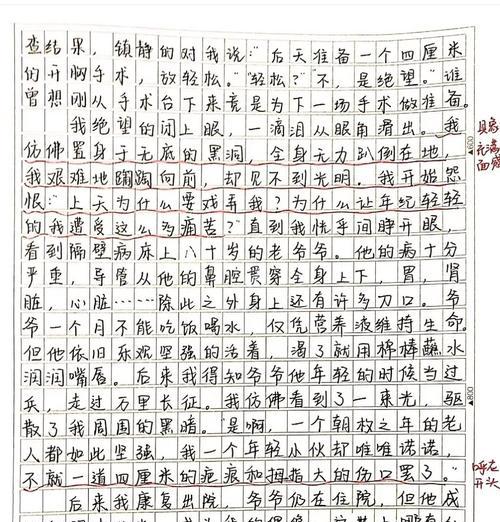 查结果，镇静的对我说："后天准备一个四厘米
的开胸手术，放轻松。""轻松？""不，是绝望。"谁
曾想刚从手术台下来竟是为下一场手术做准备。
我绝望的闭上眼，一滴泪从眼角滑出。我
仿佛置身于无底的黑洞，全身无力趴倒在地，
我艰难地蹒跚向前，却见不到光明。我开始怨
恨："上天为什么要戏弄我？为什么让年纪轻轻
的我遭受这么多痛苦？"直到我恍乎间睁开眼，
看到隔壁病床上八十岁的老爷爷。他的病十分
严重，导管从他的鼻腔贯穿全身上下，胃，肾
脏，心脏……除此之外身上还有许多刀口。爷
爷一个月不能吃饭喝水，仅凭营养液维持生命。
但他依旧乐观坚强的活着，渴了就用棉棒蘸水
润润嘴唇。后来我得知爷爷他年轻的时候当过
兵，走过万里长征。我仿佛看到了一束光，驱
散了我周围的黑暗。"是啊，一个朝枚之年的老
人都如此坚强，我一个年轻小伙却唯唯诺诺，
不就一道四厘米的疤痕和拇指大的伤口罢了。"
后来我康复出院，爷爷仍在住院，但他成
具象
充满
画感
▲600
▲800
呼应
开头